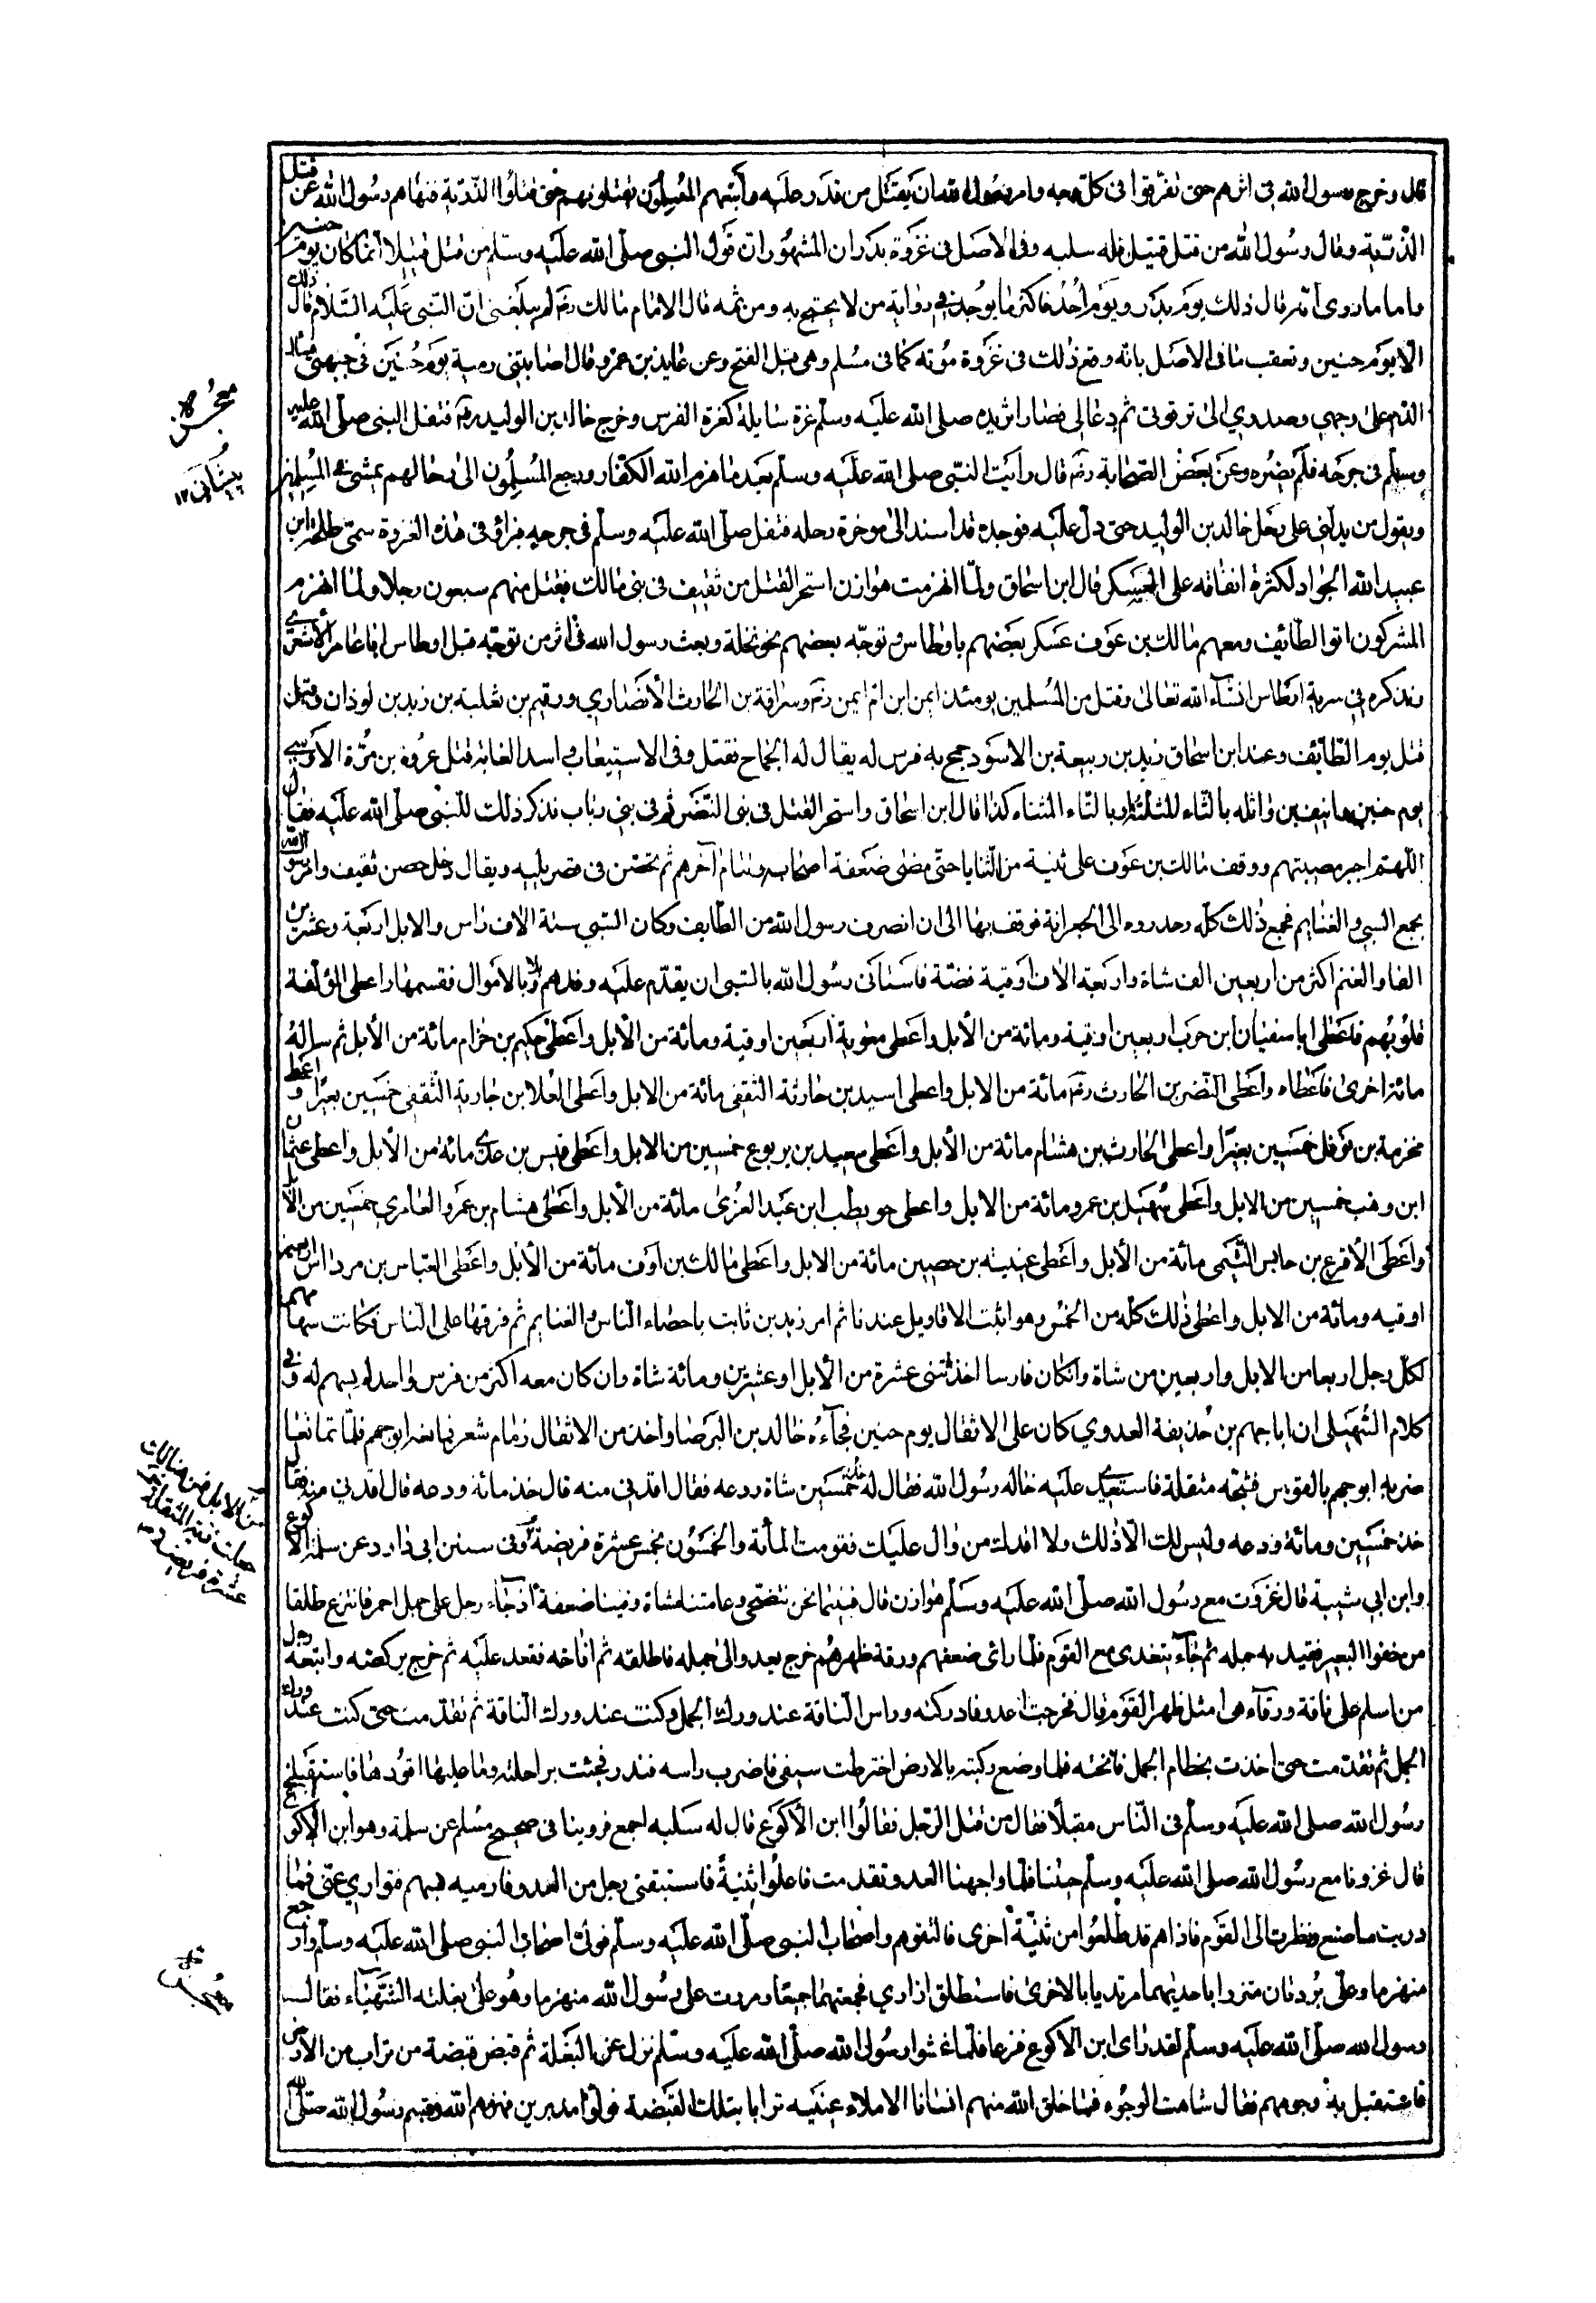 قل وخرج رسول الله في اثرهم حتى تفرقوا في كل وجه وامر رسول الله ان يقتل من قدر عليه واتبعهم المسلمون يقتلونهم حتى قتلوا الذرية فنهاهم رسول الله عن قتل
الذرية وقال رسول الله من قتل قتيلا فله سلبه وفي الاصل في غزوة بدر ان المشهور ان قول النبي صلى الله عليه وسلم من قتل قتيلا انما كان يوم حنين
واما ما روى انه قال ذلك يوم بدر ويوم احد فاكثر ما يوجد في رواية من لا يحتج به ومن ثمه قال الامام مالك رضه لم يبلغني ان النبي عليه السلام قال ذلك
الا يوم حنين وتعقب ما في الاصل بانه وقع ذلك في غزوة موته كما في مسلم وهي قبل الفتح وعن عايذ بن عمرو قال اصابتني رمية يوم حنين في جبهتي فسال
الدم على وجهي وصدري الى ترقوتي ثم دعا لي فصار اثر يده صلى الله عليه وسلم غرة سايلة كغرة الفرس وخرج خالد بن الوليد رضه فتفل النبي صلى الله عليه
وسلم في جرحه فلم يضره وعن بعض الصحابة رضه قال رايت النبي صلى الله عليه وسلم بعد ما هزم الله الكفار ورجع المسلمون الى رحالهم يمشي في المسلمين
ويقول من يدلني على رحل خالد بن الوليد حتى دل عليه فوجده قد اسند الى موخرة رحله فتفل صلى الله عليه وسلم في جرحه فبرا وفي هذه الغزوة سمى طلحة ابن
عبيد الله الجواد لكثرة انفاقه على العسكر قال ابن اسحاق ولما انهزمت هوازن استحر القتل من ثقيف في بني مالك فقتل منهم سبعون رجلا ولما انهزم
المشركون اتوا الطائف ومعهم مالك بن عوف عسكر بعضهم باوطاس وتوجه بعضهم نحو نخلة وبعث رسول الله في اثر من توجه قبل اوطاس ابا عامر الاشعري
ونذكره في سرية اوطاس انشاء الله تعالى وقتل من المسلمين يومئذ ايمن ابن ام ايمن رضه وسراقة بن الحارث الانصاري ورقيم بن ثعلبة بن زيد بن لوذان وقيل
قتل يوم الطائف وعند ابن اسحاق زيد بن ربيعة بن الاسود جمح به فرس له يقال له الجماح فقتل وفي الاستيعاب واسد الغابة قتل عروة بن مرة الاوسي
يوم حنين واثله بالثاء المثلثة او بالتاء المثناه كذا قال ابن اسحاق واستحر القتل في بني النضر ثم في بني رباب فذكر ذلك للنبي صلى الله عليه فقال
اللهم اجبر مصيبتهم ووقف مالك بن عوف على ثنية من الثنايا حتى مضى ضعفة اصحابه وتنام آخرهم ثم تحصن في قصر بليه ويقال دخل حصن ثقيف وامر رسول الله
بجمع السبي والغنايم فجمع ذلك كله وحدروه الى الجعرانة فوقف بها الى ان انصرف رسول الله من الطايف وكان السبي ستة الاف راس والابل اربعة وعشرين
الفا والغنم اكثر من اربعين الف شاة واربعة الاف اوقية فضة فاستانى رسول الله بالسبي ان يقدم عليه وفدهم وبدا بالاموال فقسمها واعطى المؤلفة
قلوبهم فاعطى ابا سفيان ابن حرب اربعين اوقية ومائة من الابل واعطى معوية اربعين اوقية ومائة من الابل واعطى حكيم بن حزام مائة من الابل ثم ساله
مائة اخرى فاعطاه واعطى النضر بن الحارث رضه مائة من الابل واعطى اسيد بن حارثة الثقفي مائة من الابل واعطى العلا بن جارية الثقفي خمسين بعيرا واعطى
مخرمة بن نوفل خمسين بعيرا واعطى الحارث بن هشام مائة من الابل واعطى سعيد بن يربوع خمسين من الابل واعطى قيس بن عدي مائة من الابل واعطى عثمان
ابن وهب خمسين من الابل واعطى سهيل بن عمرو مائة من الابل واعطى حويطب ابن عبد العزى مائة من الابل واعطى هشام بن عمرو العامري خمسين من الابل
واعطى الاقرع بن حابس التميمي مائة من الابل واعطى عيينة بن حصين مائة من الابل واعطى مالك بن اوف مائة من الابل واعطى العباس بن مرداس اربعين
اوقيه ومائة من الابل واعطى ذلك كله من الخمس وهو اثبت الاقاويل عندنا ثم امر زيد بن ثابت باحصاء الناس والغنايم ثم فرقها على الناس فكانت سهامهم
لكل رجل اربعا من الابل واربعين من شاة وان كان فارسا اخذ اثنتي عشرة من الابل او عشرين ومائة شاة وان كان معه اكثر من فرس واحد لم يسهم له وفي
كلام السهيلي ان ابا جهم بن حذيفة العدوي كان على الانفال يوم حنين فجاءه خالد بن البرصا واخذ من الانفال زمام شعر فمانعه ابو جهم فلما تمانعا
ضربه ابو جهم بالقوس فشجه منقلة فاستعدى عليه خاله رسول الله فقال له خذ خمسين شاة ودعه فقال اقدني منه قال خذ مائة ودعه قال اقدني منه فقال
خذ خمسين ومائة ودعه وليس لك الا ذلك ولا اقدك من وال عليك فقومت المائة والخمسون بخمس عشرة فريضة وفي سنن ابي داود عن سلمة الاكوع
وابن ابي شيبة قال غزوت مع رسول الله صلى الله عليه وسلم هوازن قال فبينما نحن نتضحى وعامتنا مشاة وفينا ضعفة اذ جاء رجل على جمل احمر فانتزع طلقا
من حقو البعير فقيد به جمله ثم جاء يتغدى مع القوم فلما راى ضعفهم ورقة ظهرهم خرج يعدو الى جمله فاطلقه ثم اناخه فقعد عليه ثم خرج يركضه واتبعه رجل
من اسلم على ناقة ورقاء هي امثل ظهر القوم قال فخرجت اعدو فادركته وراس الناقة عند ورك الجمل وكنت عند ورك الناقة ثم تقدمت حتى كنت عند ورك
الجمل ثم تقدمت حتى اخذت بخطام الجمل فانخته فلما وضع ركبته بالارض اخترطت سيفي فاضرب راسه فندر فجئت براحلته وما عليها اقودها فاستقبلني
رسول الله صلى الله عليه وسلم في الناس مقبلا فقال من قتل الرجل فقالوا ابن الاكوع قال له سلبه اجمع فروينا في صحيح مسلم عن سلمة وهو ابن الاكوع
قال غزونا مع رسول الله صلى الله عليه وسلم حنينا فلما واجهنا العدو تقدمت فاعلوا ثنية فاستقبلني رجل من العدو فارميه بسهم فتوارى عني فما
دريت ما صنع ونظرت الى القوم فاذا هم قد طلعوا من ثنية اخرى فالتقوهم واصحاب النبي صلى الله عليه وسلم فولى اصحاب النبي صلى الله عليه وسلم وارجع
منهزما وعلى بردتان متزرا باحديهما مرتديا بالاخرى فاستطلق ازاري فجمعتهما جميعا ومررت على رسول الله منهزما وهو على بغلته الشهباء فقال
رسول الله صلى الله عليه وسلم لقد راى ابن الاكوع فزعا فلما غشوا رسول الله صلى الله عليه وسلم نزل عن البغلة ثم قبض قبضة من تراب من الارض
فاستقبل به وجوههم فقال شاهت الوجوه فما خلق الله منهم انسانا الا ملاء عينيه ترابا بتلك القبضة فولوا مدبرين فهزمهم الله وقسم رسول الله صلى